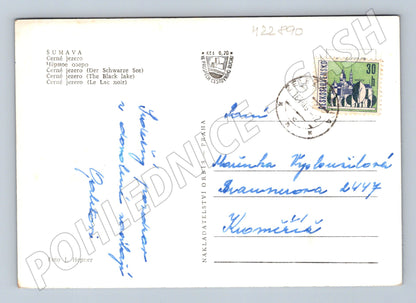 422890
ŠUMAVA
Černé jezero
Чёрное озеро
Černé jezero (Der Schwarze See)
Černé jezero (The Black lake)
Černé jezero (Le Lac noir)
Kčs 0,70
ČESKOSLOVENSKO
30
h
Srdečný pozdrav
z dovolené
Paní
Mařenka Vyplouzilová
Braunerova 2447
Kroměříž
NAKLADATELSTVÍ ORBIS · PRAHA
Foto J. Hepner
POHLEDNICE CASH